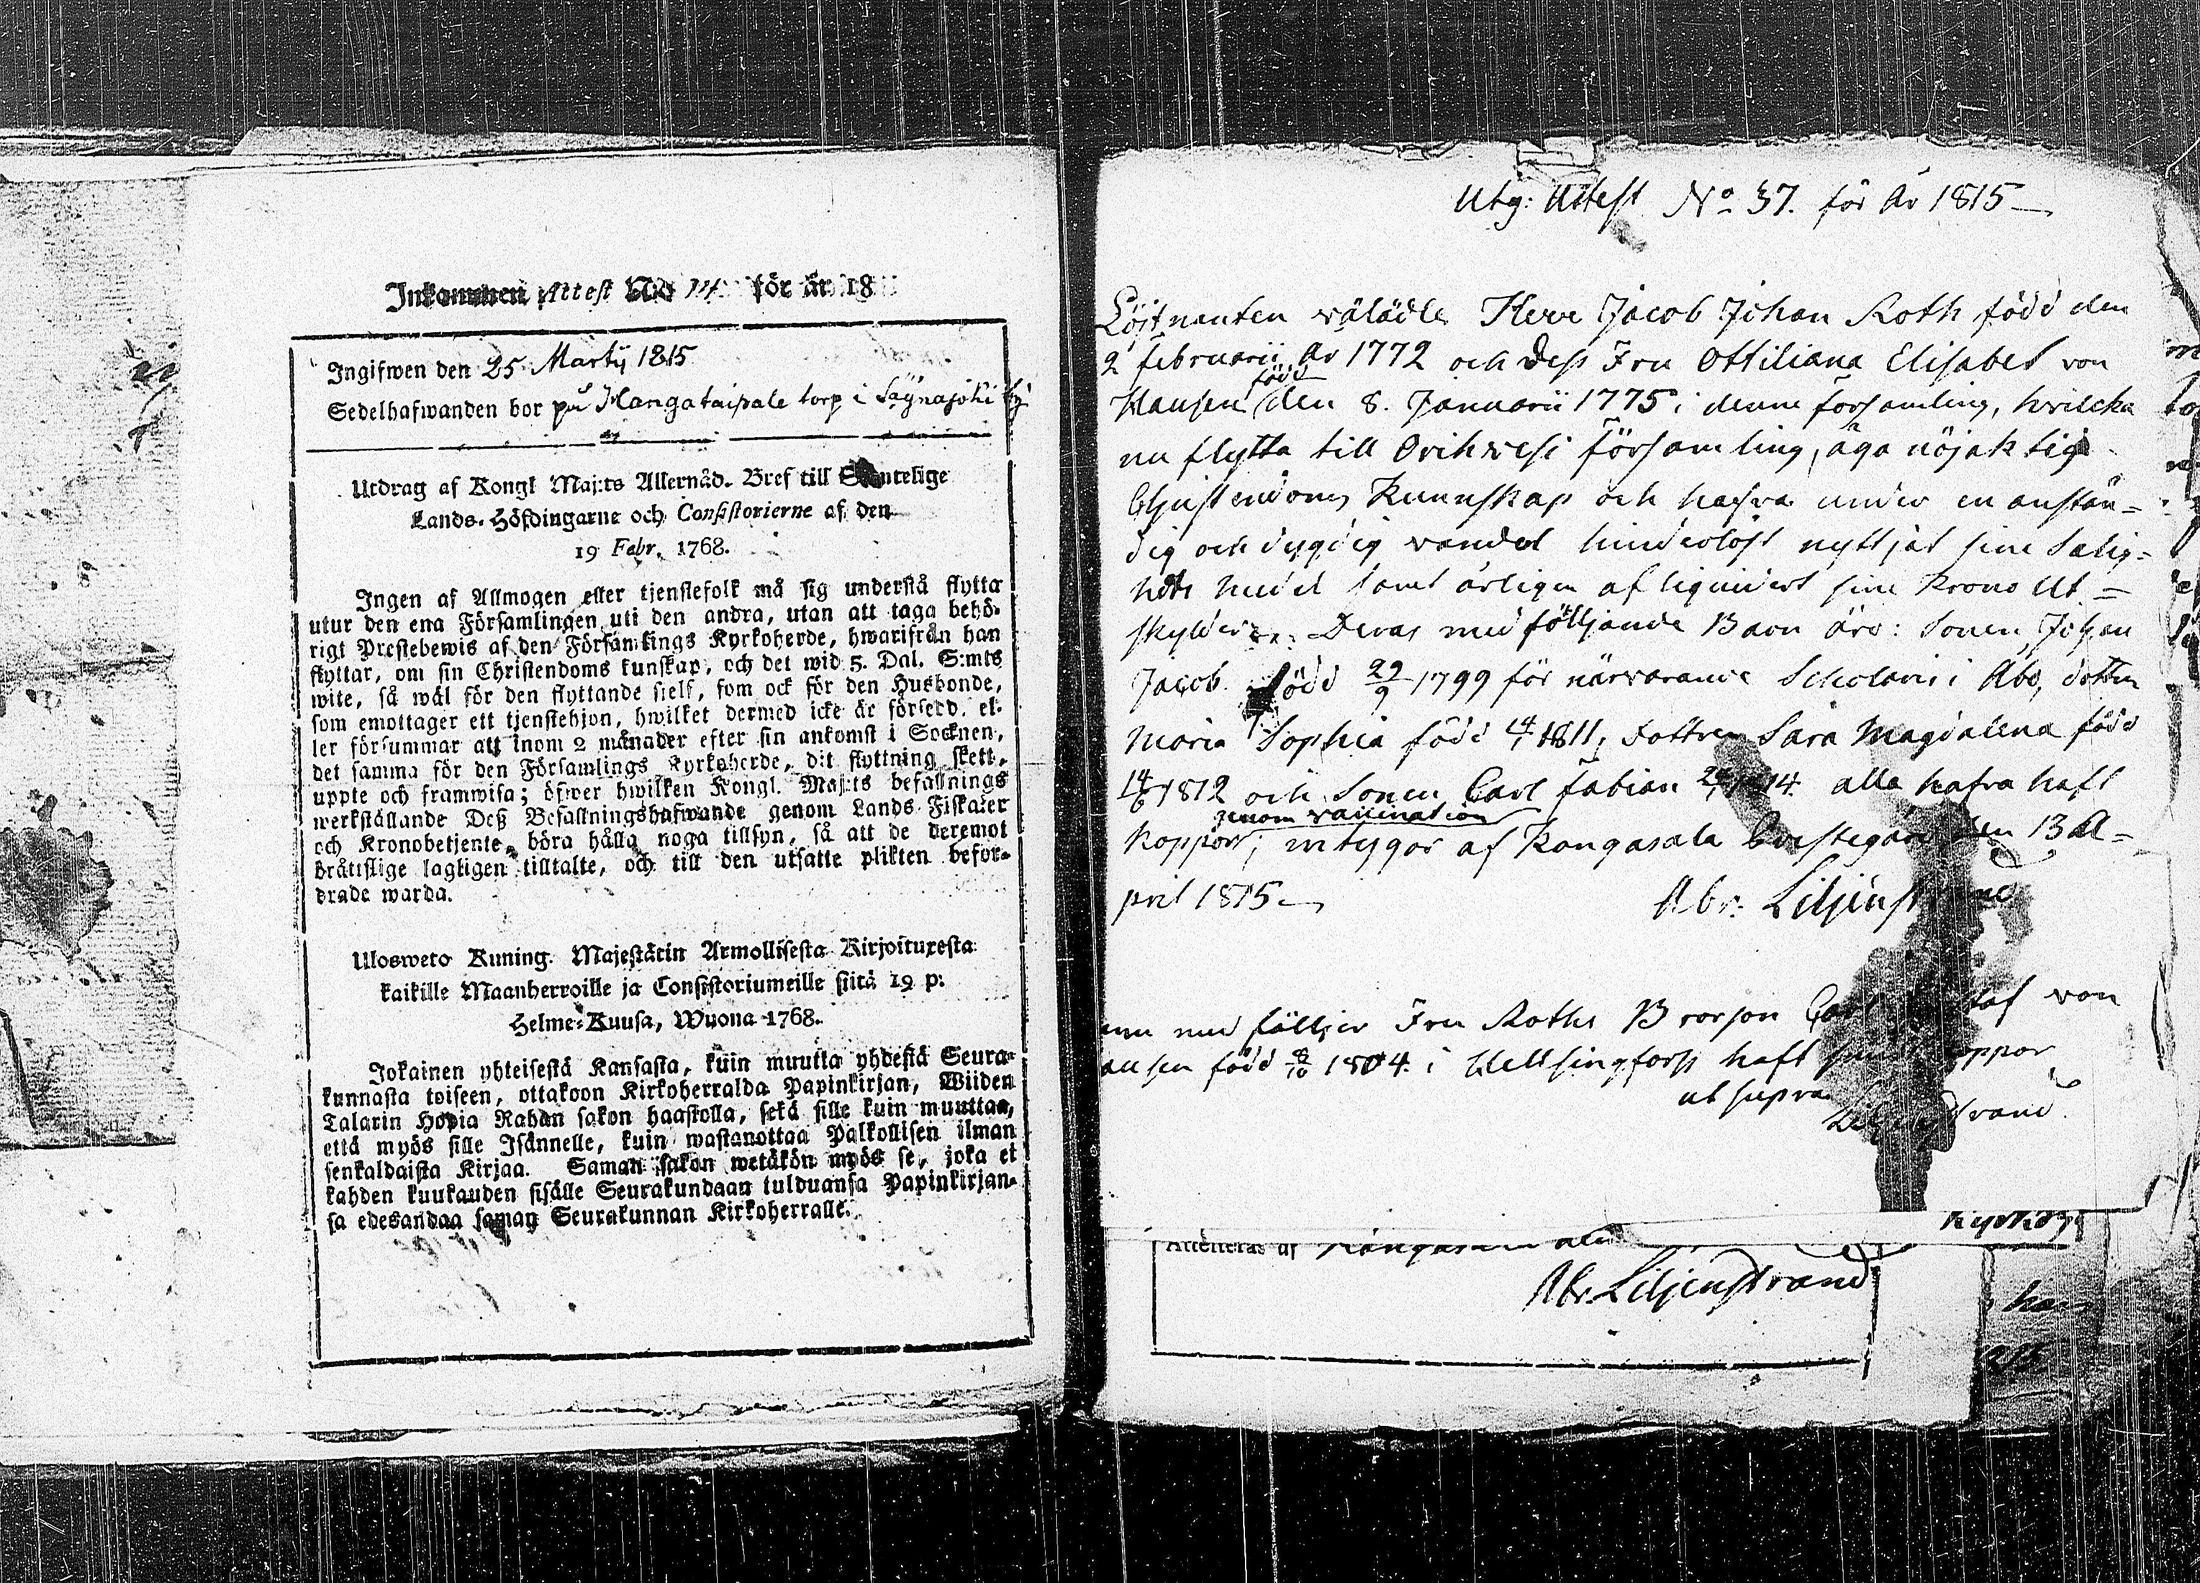 Inkommen Attest No 14. för år 18
Ingifwen den 25 Martij 1815
Sedelhafwanden bor på Hangataipale torp i Säynäjoki by
Utdrag af Kongl Maj:ts Allernåd. Bref till Samtelige
Lands-Höfdingarne och Consistorierne af den
19 Febr. 1768.
Ingen af Allmogen eller tjenstefolk må sig understå flytta
utur den ena Församlingen uti den andra, utan att taga behö-
rigt Prestebewis af den Församlings Kyrkoherde, hwarifrån han
flyttar, om sin Christendoms kunskap, och det wid 5. Dal. S:mts
wite, så wäl för den flyttande sielf, som ock för den Husbonde,
som emottager ett tjenstehjon, hwilket dermed icke är försedd, el-
ler försummar att inom 2 månader efter sin ankomst i Socknen,
det samma för den Församlings Kyrkoherde, dit flyttning skett,
uppte och framwisa; öfwer hwilken Kongl. Maj:ts befallnings
werkställande Deß Befallningshafwande genom Lands-Fiskaler
och Kronobetjente, böra hålla noga tillsyn, så att de deremot
bråttslige lagligen tilltalte, och till den utsatte plikten befor-
drade warda.
Ulosweto Kuning. Majestätin Armollisesta Kirjoituxesta
kaikille Maanherroille ja Consistoriumeille siitä 19 p:
Helme-Kuusa, Wuona 1768.
Jokainen yhteisestä Kansasta, kuin muutta yhdestä Seura-
kunnasta toiseen, ottakoon Kirkoherralda Papinkirjan, Wiiden
Talarin Hopia Rahan sakon haastolla, sekä sille kuin muuttaa,
että myös sille Isännelle, kuin wastanottaa Palkollisen ilman
senkaldaista Kirjaa. Saman sakon wetäkön myös se, joka ei
kahden kuukauden sisälle Seurakundaan tulduansa Papinkirjan-
sa edesandaa saman Seurakunnan Kirkoherralle.
Utg: Attest No 37. för År 1815
Löjtnanten välädle Herr Jacob Johan Roth född den
2 februarii År 1772 och Dess Fru Ottiliana Elisabet von
Hausen född den 8. Januarii 1775 i denne församling, hvilcka
nu flytta till Orihvesi församling, äga nöjaktig
Christendoms Kunnskap och hafva under en anstän=
dig och dygdig vandel hinderlöst nyttjat sine Salig=
hets medel samt årligen afliquidert sine Krono Ut=
skylder. Deras medföljande Barn äro: Sonen Johan
Jacob född 29/9 1799 för närvarande Scholaris i Åbo, dottren
Maria Sophia född 4/1 1811, Dottren Sara Magdalena född
14/6 1812 och Sonen Carl Fabian 1814 alla hafva haft
koppor, genom vaccination intygar af Kangasala Prestegård den 13 A=
pril 1815
Abr: Liljenstrand
med följer Fru Roths Brorson von
ausen född 1804 i Hellsingforss haft koppor
ut supra
Liljenstrand
Attesteras af Kangasala
Abr. Liljenstrand